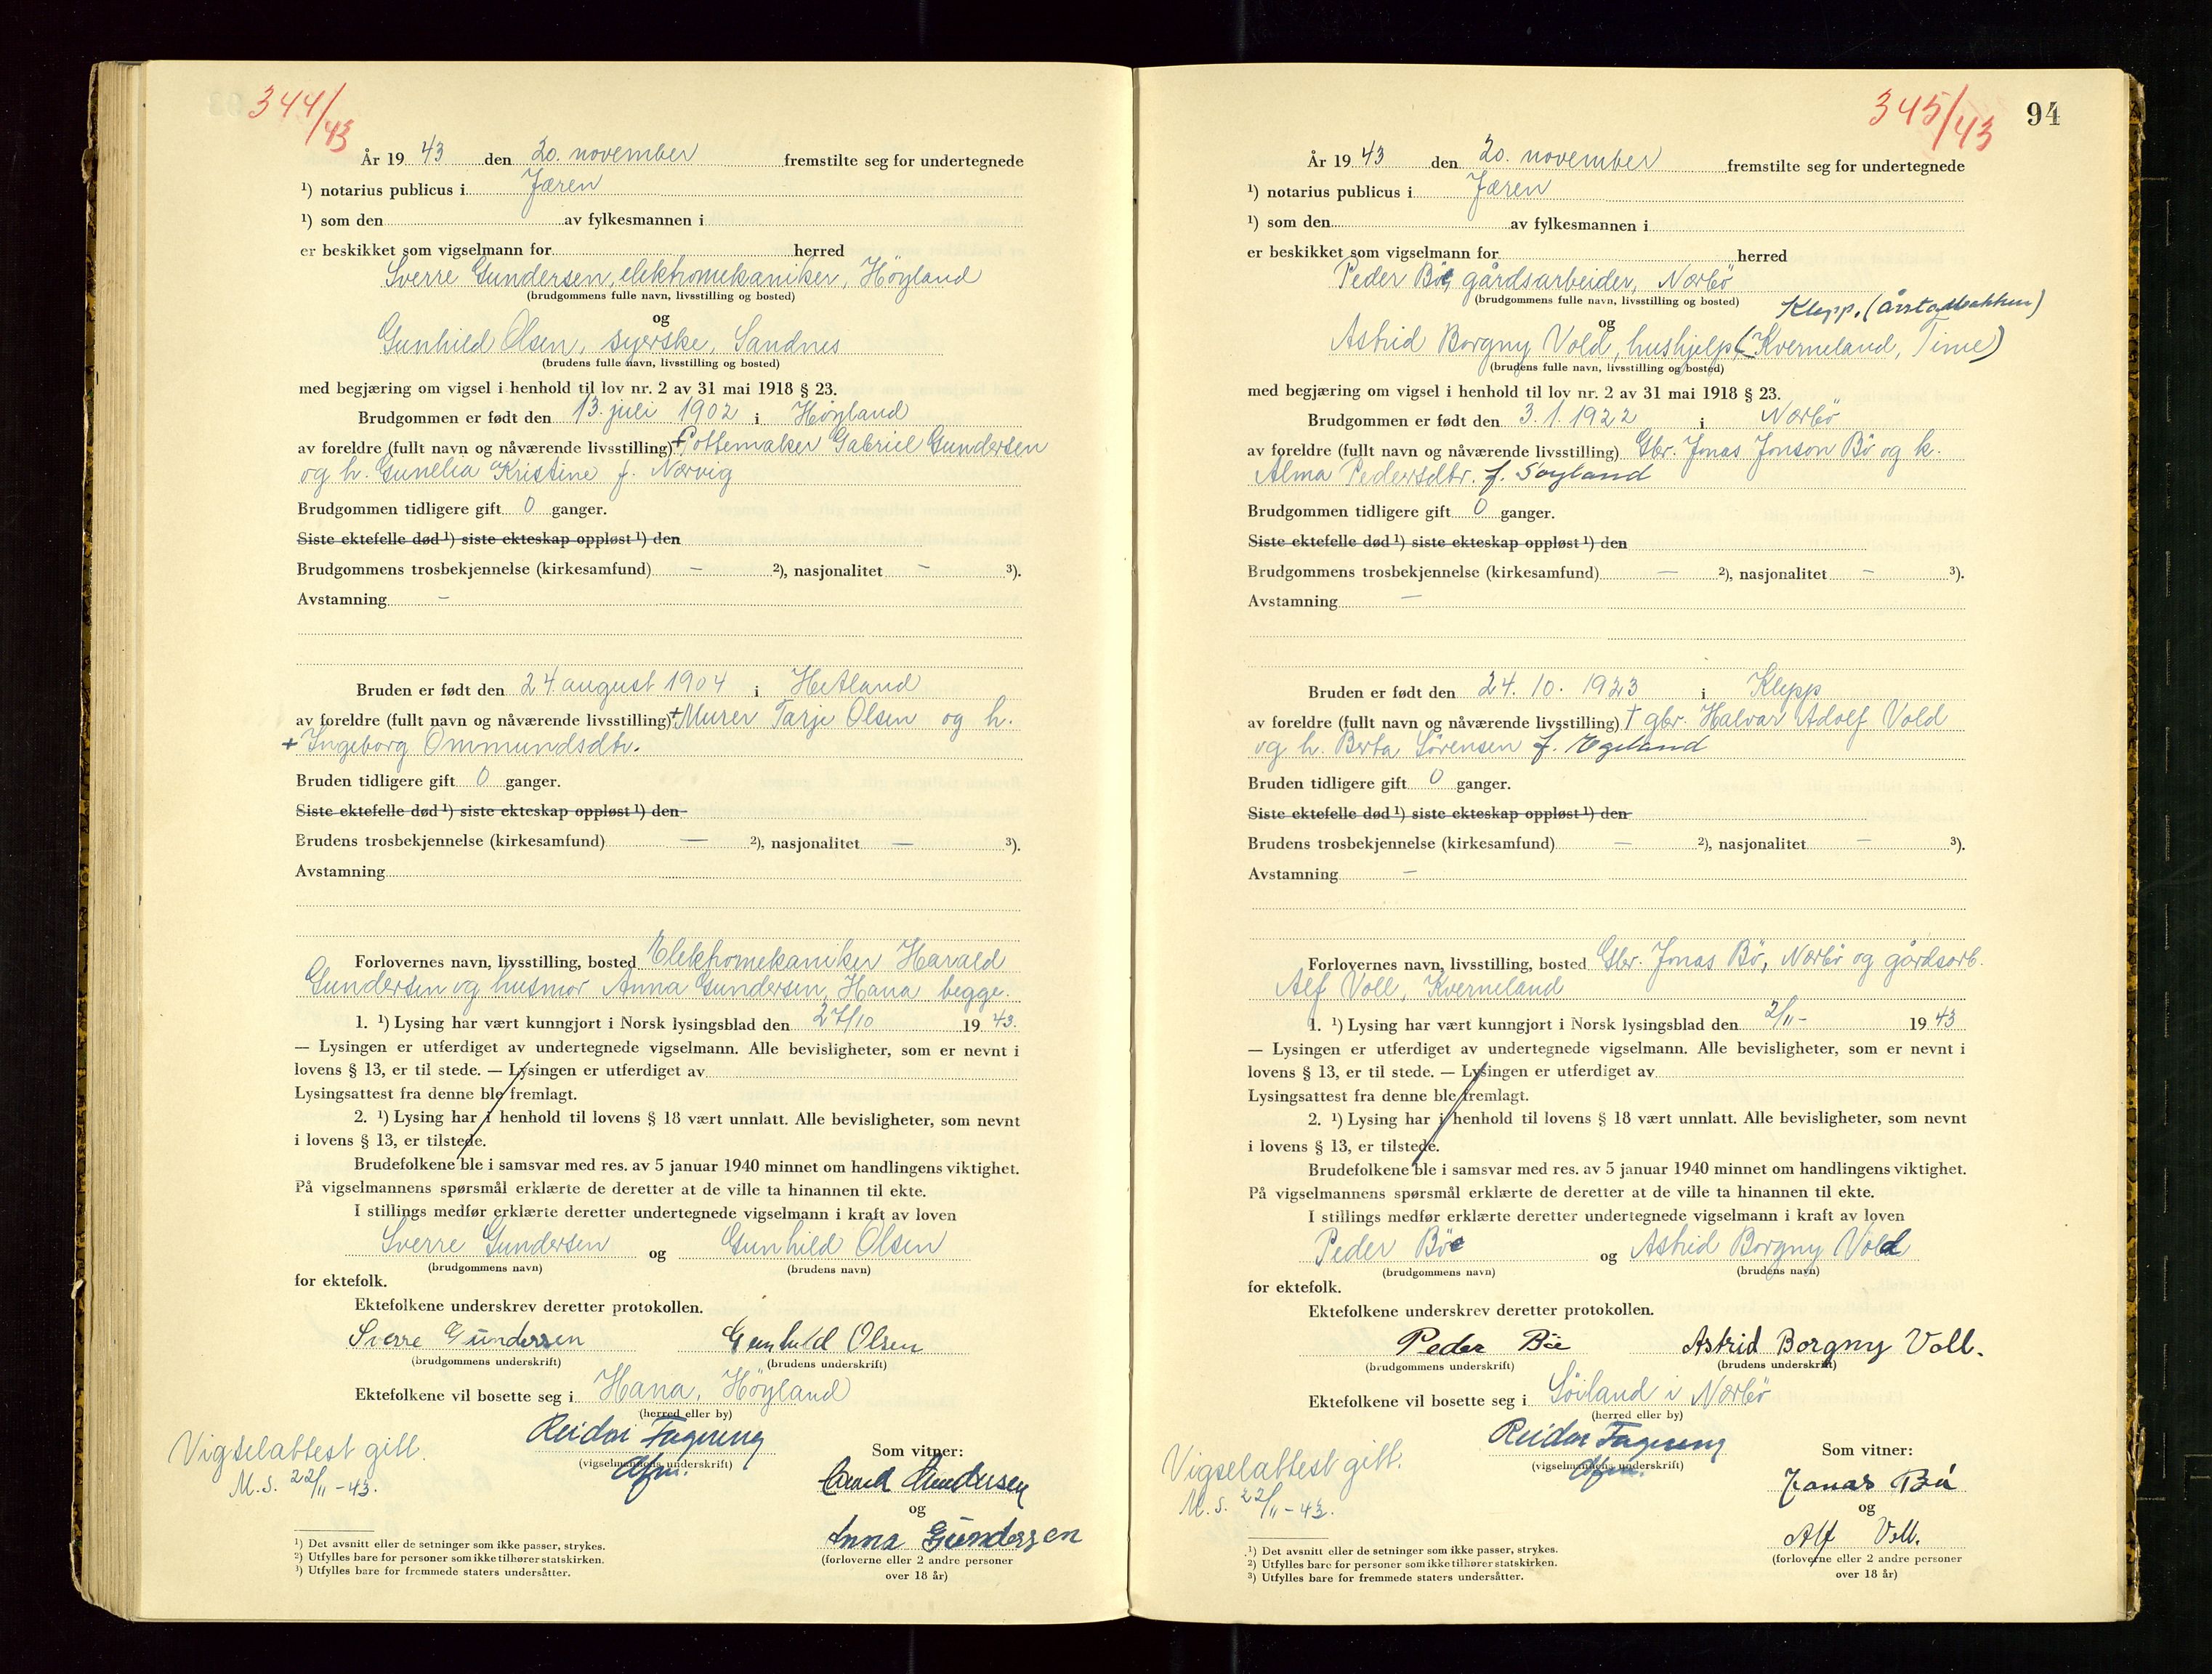 344/43
År 19 43 den 20. november fremstilte seg for undertegnede
¹) notarius publicus i Jæren
¹) som den av fylkesmannen i
er beskikket som vigselmann for herred
Sverre Gundersen, elektromekaniker, Höyland
(brudgommens fulle navn, livsstilling og bosted)
og
Gunhild Olsen, syerske, Sandnes
(brudens fulle navn, livsstilling og bosted)
med begjæring om vigsel i henhold til lov nr. 2 av 31 mai 1918 § 23.
Brudgommen er født den 13. juli 1902 i Höyland
av foreldre (fullt navn og nåværende livsstilling) + Pottemaker Gabriel Gundersen
og h. Gunelia Kristine f. Nærvig
Brudgommen tidligere gift 0 ganger.
Siste ektefelle død ¹) siste ekteskap oppløst ¹) den
Brudgommens trosbekjennelse (kirkesamfund) — ²), nasjonalitet — ³).
Avstamning —
Bruden er født den 24. august 1904 i Hetland
av foreldre (fullt navn og nåværende livsstilling) + Murer Tarje Olsen og h.
+ Ingeborg Ommundsdtr.
Bruden tidligere gift 0 ganger.
Siste ektefelle død ¹) siste ekteskap oppløst ¹) den
Brudens trosbekjennelse (kirkesamfund) — ²), nasjonalitet — ³).
Avstamning
Forlovernes navn, livsstilling, bosted Elektromekaniker Harald
Gundersen og husmor Anna Gundersen, Hana begge.
1. ¹) Lysing har vært kunngjort i Norsk lysingsblad den 27/10 19 43.
— Lysingen er utferdiget av undertegnede vigselmann. Alle bevisligheter, som er nevnt i
lovens § 13, er til stede. — Lysingen er utferdiget av
Lysingsattest fra denne ble fremlagt.
2. ¹) Lysing har i henhold til lovens § 18 vært unnlatt. Alle bevisligheter, som nevnt
i lovens § 13, er tilstede.
Brudefolkene ble i samsvar med res. av 5 januar 1940 minnet om handlingens viktighet.
På vigselmannens spørsmål erklærte de deretter at de ville ta hinannen til ekte.
I stillings medfør erklærte deretter undertegnede vigselmann i kraft av loven
Sverre Gundersen og Gunhild Olsen
(brudgommens navn) (brudens navn)
for ektefolk.
Ektefolkene underskrev deretter protokollen.
Sverre Gundersen Gunhild Olsen
(brudgommens underskrift) (brudens underskrift)
Ektefolkene vil bosette seg i Hana, Höyland
(herred eller by)
Reidar Fagereng
(vigselmannens underskrift)
dfm.
Vigselattest gitt.
M.S. 22/11-43.
Som vitner:
Harald Gundersen
og
Anna Gundersen
(forloverne eller 2 andre personer
over 18 år)
¹) Det avsnitt eller de setninger som ikke passer, strykes.
²) Utfylles bare for personer som ikke tilhører statskirken.
³) Utfylles bare for fremmede staters undersåtter.
345/43
94
År 19 43 den 20. november fremstilte seg for undertegnede
¹) notarius publicus i Jæren
¹) som den av fylkesmannen i
er beskikket som vigselmann for herred
Peder Böe, gårdsarbeider, Nærbö
(brudgommens fulle navn, livsstilling og bosted)
Klepp. (Årstadbakken)
og
Astrid Borgny Vold, hushjelp, (Kverneland, Time)
(brudens fulle navn, livsstilling og bosted)
med begjæring om vigsel i henhold til lov nr. 2 av 31 mai 1918 § 23.
Brudgommen er født den 3. 1. 1922 i Nærbö
av foreldre (fullt navn og nåværende livsstilling) Gbr. Jonas Jonson Bö og h.
Alma Pedersdtr. f. Söyland
Brudgommen tidligere gift 0 ganger.
Siste ektefelle død ¹) siste ekteskap oppløst ¹) den
Brudgommens trosbekjennelse (kirkesamfund) — ²), nasjonalitet — ³).
Avstamning —
Bruden er født den 24. 10. 1923 i Klepp
av foreldre (fullt navn og nåværende livsstilling) † gbr. Halvar Adolf Vold
og h. Berta Sörensen f. Egeland
Bruden tidligere gift 0 ganger.
Siste ektefelle død ¹) siste ekteskap oppløst ¹) den
Brudens trosbekjennelse (kirkesamfund) — ²), nasjonalitet — ³).
Avstamning —
Forlovernes navn, livsstilling, bosted Gbr. Jonas Bö, Nærbö og gårdsarb.
Alf Voll, Kverneland
1. ¹) Lysing har vært kunngjort i Norsk lysingsblad den 2/11- 19 43
— Lysingen er utferdiget av undertegnede vigselmann. Alle bevisligheter, som er nevnt i
lovens § 13, er til stede. — Lysingen er utferdiget av
Lysingsattest fra denne ble fremlagt.
2. ¹) Lysing har i henhold til lovens § 18 vært unnlatt. Alle bevisligheter, som nevnt
i lovens § 13, er tilstede.
Brudefolkene ble i samsvar med res. av 5 januar 1940 minnet om handlingens viktighet.
På vigselmannens spørsmål erklærte de deretter at de ville ta hinannen til ekte.
I stillings medfør erklærte deretter undertegnede vigselmann i kraft av loven
Peder Böe og Astrid Borgny Vold
(brudgommens navn) (brudens navn)
for ektefolk.
Ektefolkene underskrev deretter protokollen.
Peder Böe Astrid Borgny Voll.
(brudgommens underskrift) (brudens underskrift)
Ektefolkene vil bosette seg i Söiland i Nærbö
(herred eller by)
Reidar Fagereng
(vigselmannens underskrift)
dfm.
Vigselattest gitt.
M.S. 22/11-43.
Som vitner:
Jonas Bö
og
Alf Voll.
(forloverne eller 2 andre personer
over 18 år)
¹) Det avsnitt eller de setninger som ikke passer, strykes.
²) Utfylles bare for personer som ikke tilhører statskirken.
³) Utfylles bare for fremmede staters undersåtter.